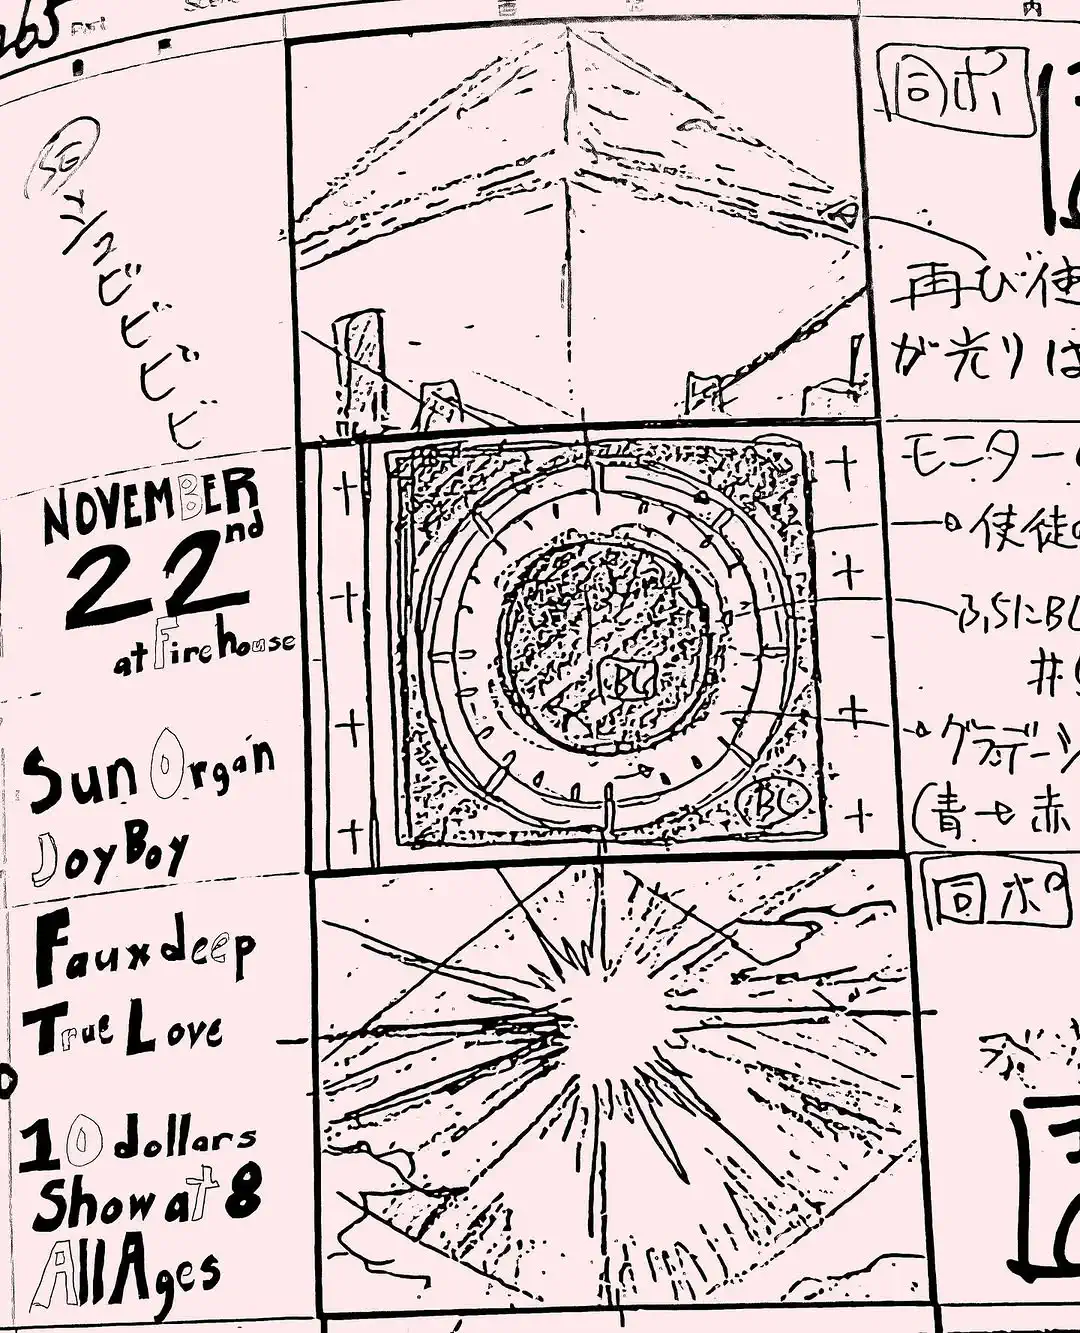 SG
シュビビビビ
NOVEMBER
22nd
at Firehouse
Sun Organ
Joy Boy
Faux deep
True Love
10 dollars
Show at 8
All Ages
BG
BG
同ポ
再び使
が光りは
モニター
使徒の
ふちにBG
グラデーシ
(青→赤
同ポ